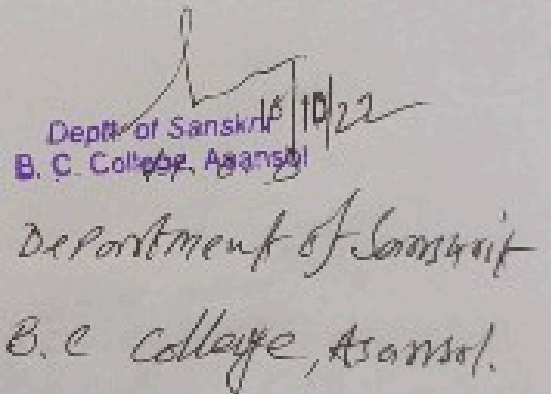 18/10/22
Deptt of Sanskrit
B. C. College, Asansol
Department of Sanskrit
B.C College, Asansol.